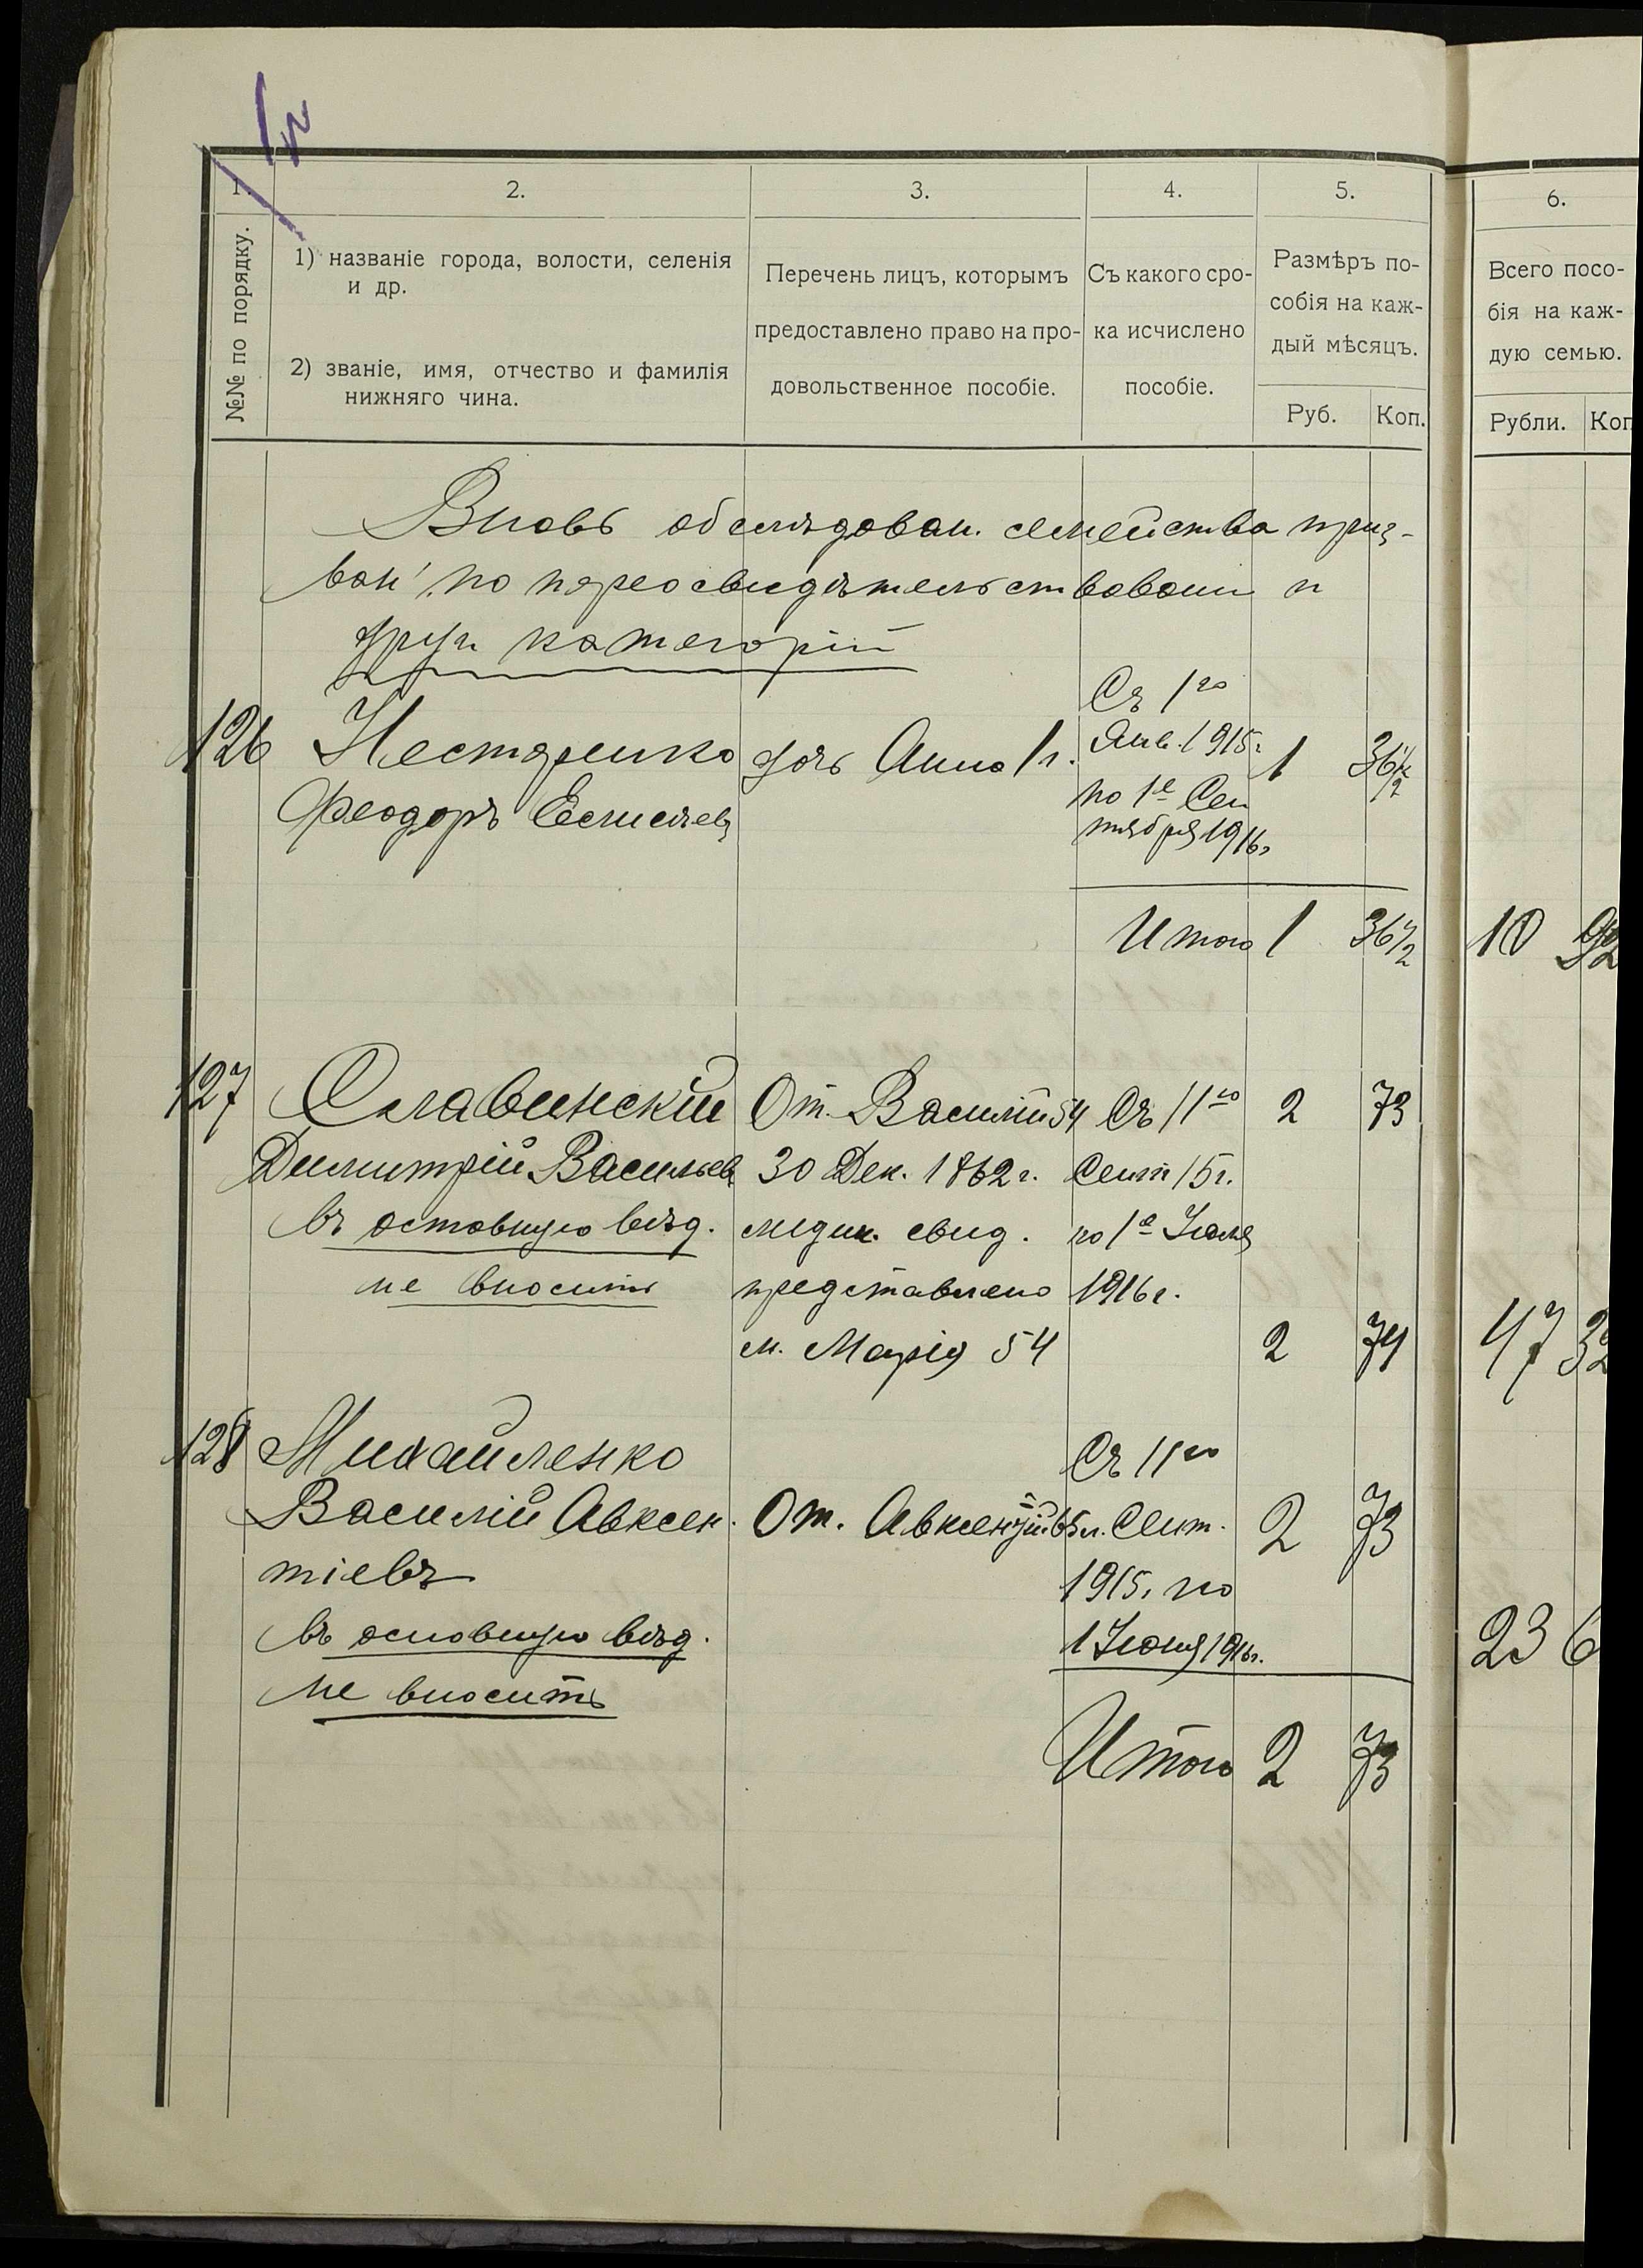 1. 2. 3. 4. 5. 6.
№№ по порядку.
1) названіе города, волости, селенія
и др.
2) званіе, имя, отчество и фамилія
нижняго чина.
Перечень лицъ, которымъ
предоставлено право на про-
довольственное пособіе.
Съ какого сро-
ка исчислено
пособіе.
Размѣръ по-
собія на каж-
дый мѣсяцъ.
Руб. Коп.
Всего посо-
бія на каж-
дую семью.
Рубли. Коп
Вновь обслѣдован. семейства приз-
ван. по переосвидѣтельствовании и
друг категорій
Съ 1го
126 Нестеренко дочь Анна 1 г. Янв. 1915 г. 1 36 1/2
Феодоръ Елисѣев по 1е Сен
тября 1916 г
Итого 1 36 1/2 10 92
127 Славинский От. Василій 54 Съ 11го 2 73
Димитрій Васильев 30 Дек. 1862 г. Сент 15 г.
въ оставную вѣд. медик. свид. по 1е Июля
не вносить представлено 1916 г.
м. Марія 54 2 74 47 32
128 Михайленко Съ 11го
Василій Авксен- От. Авксентій 65 л. Сент. 2 73
тіевъ 1915, по
въ основную вѣд. 1 Июня 1916 г. 23 6
не вносить
Итого 2 73